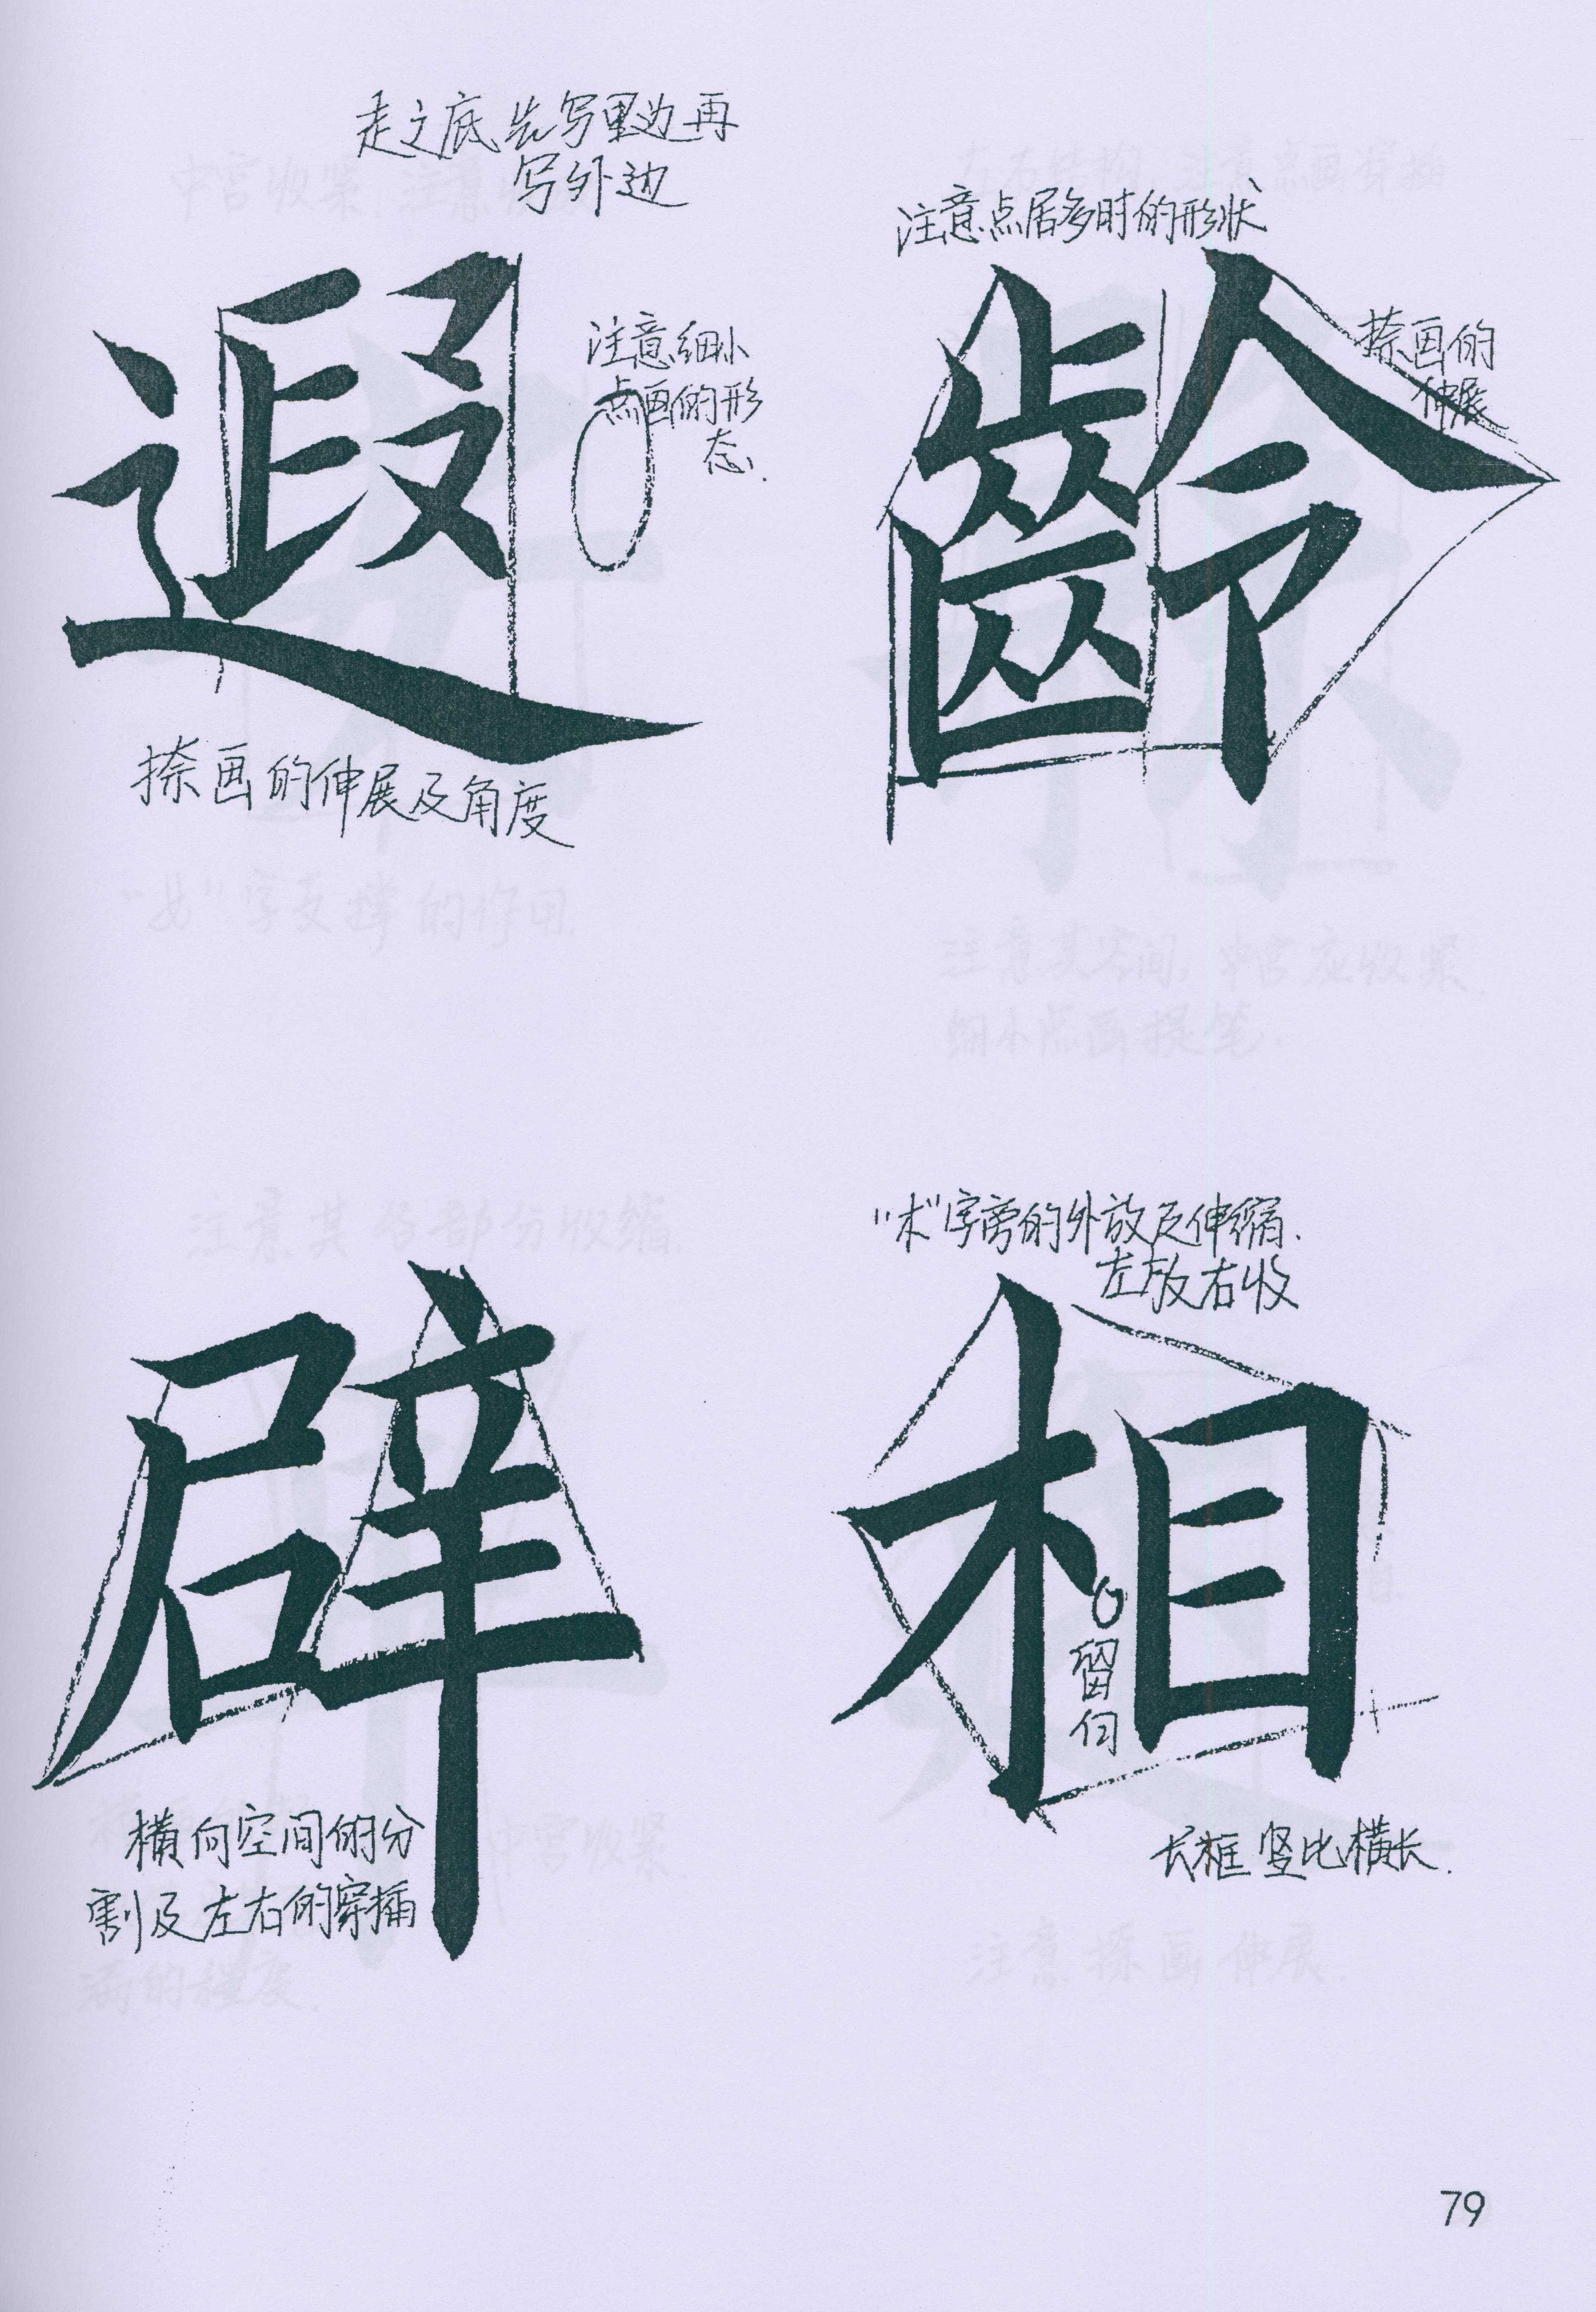 走之底先写里边再
写外边
遐
注意细小
点画的形
态.
捺画的伸展及角度
注意点居多时的形状
齡
捺画的
伸展
辟
横向空间的分
割及左右的穿插
"木"字旁的外放及伸缩.
左放右收
相
留白
长框竖比横长.
79